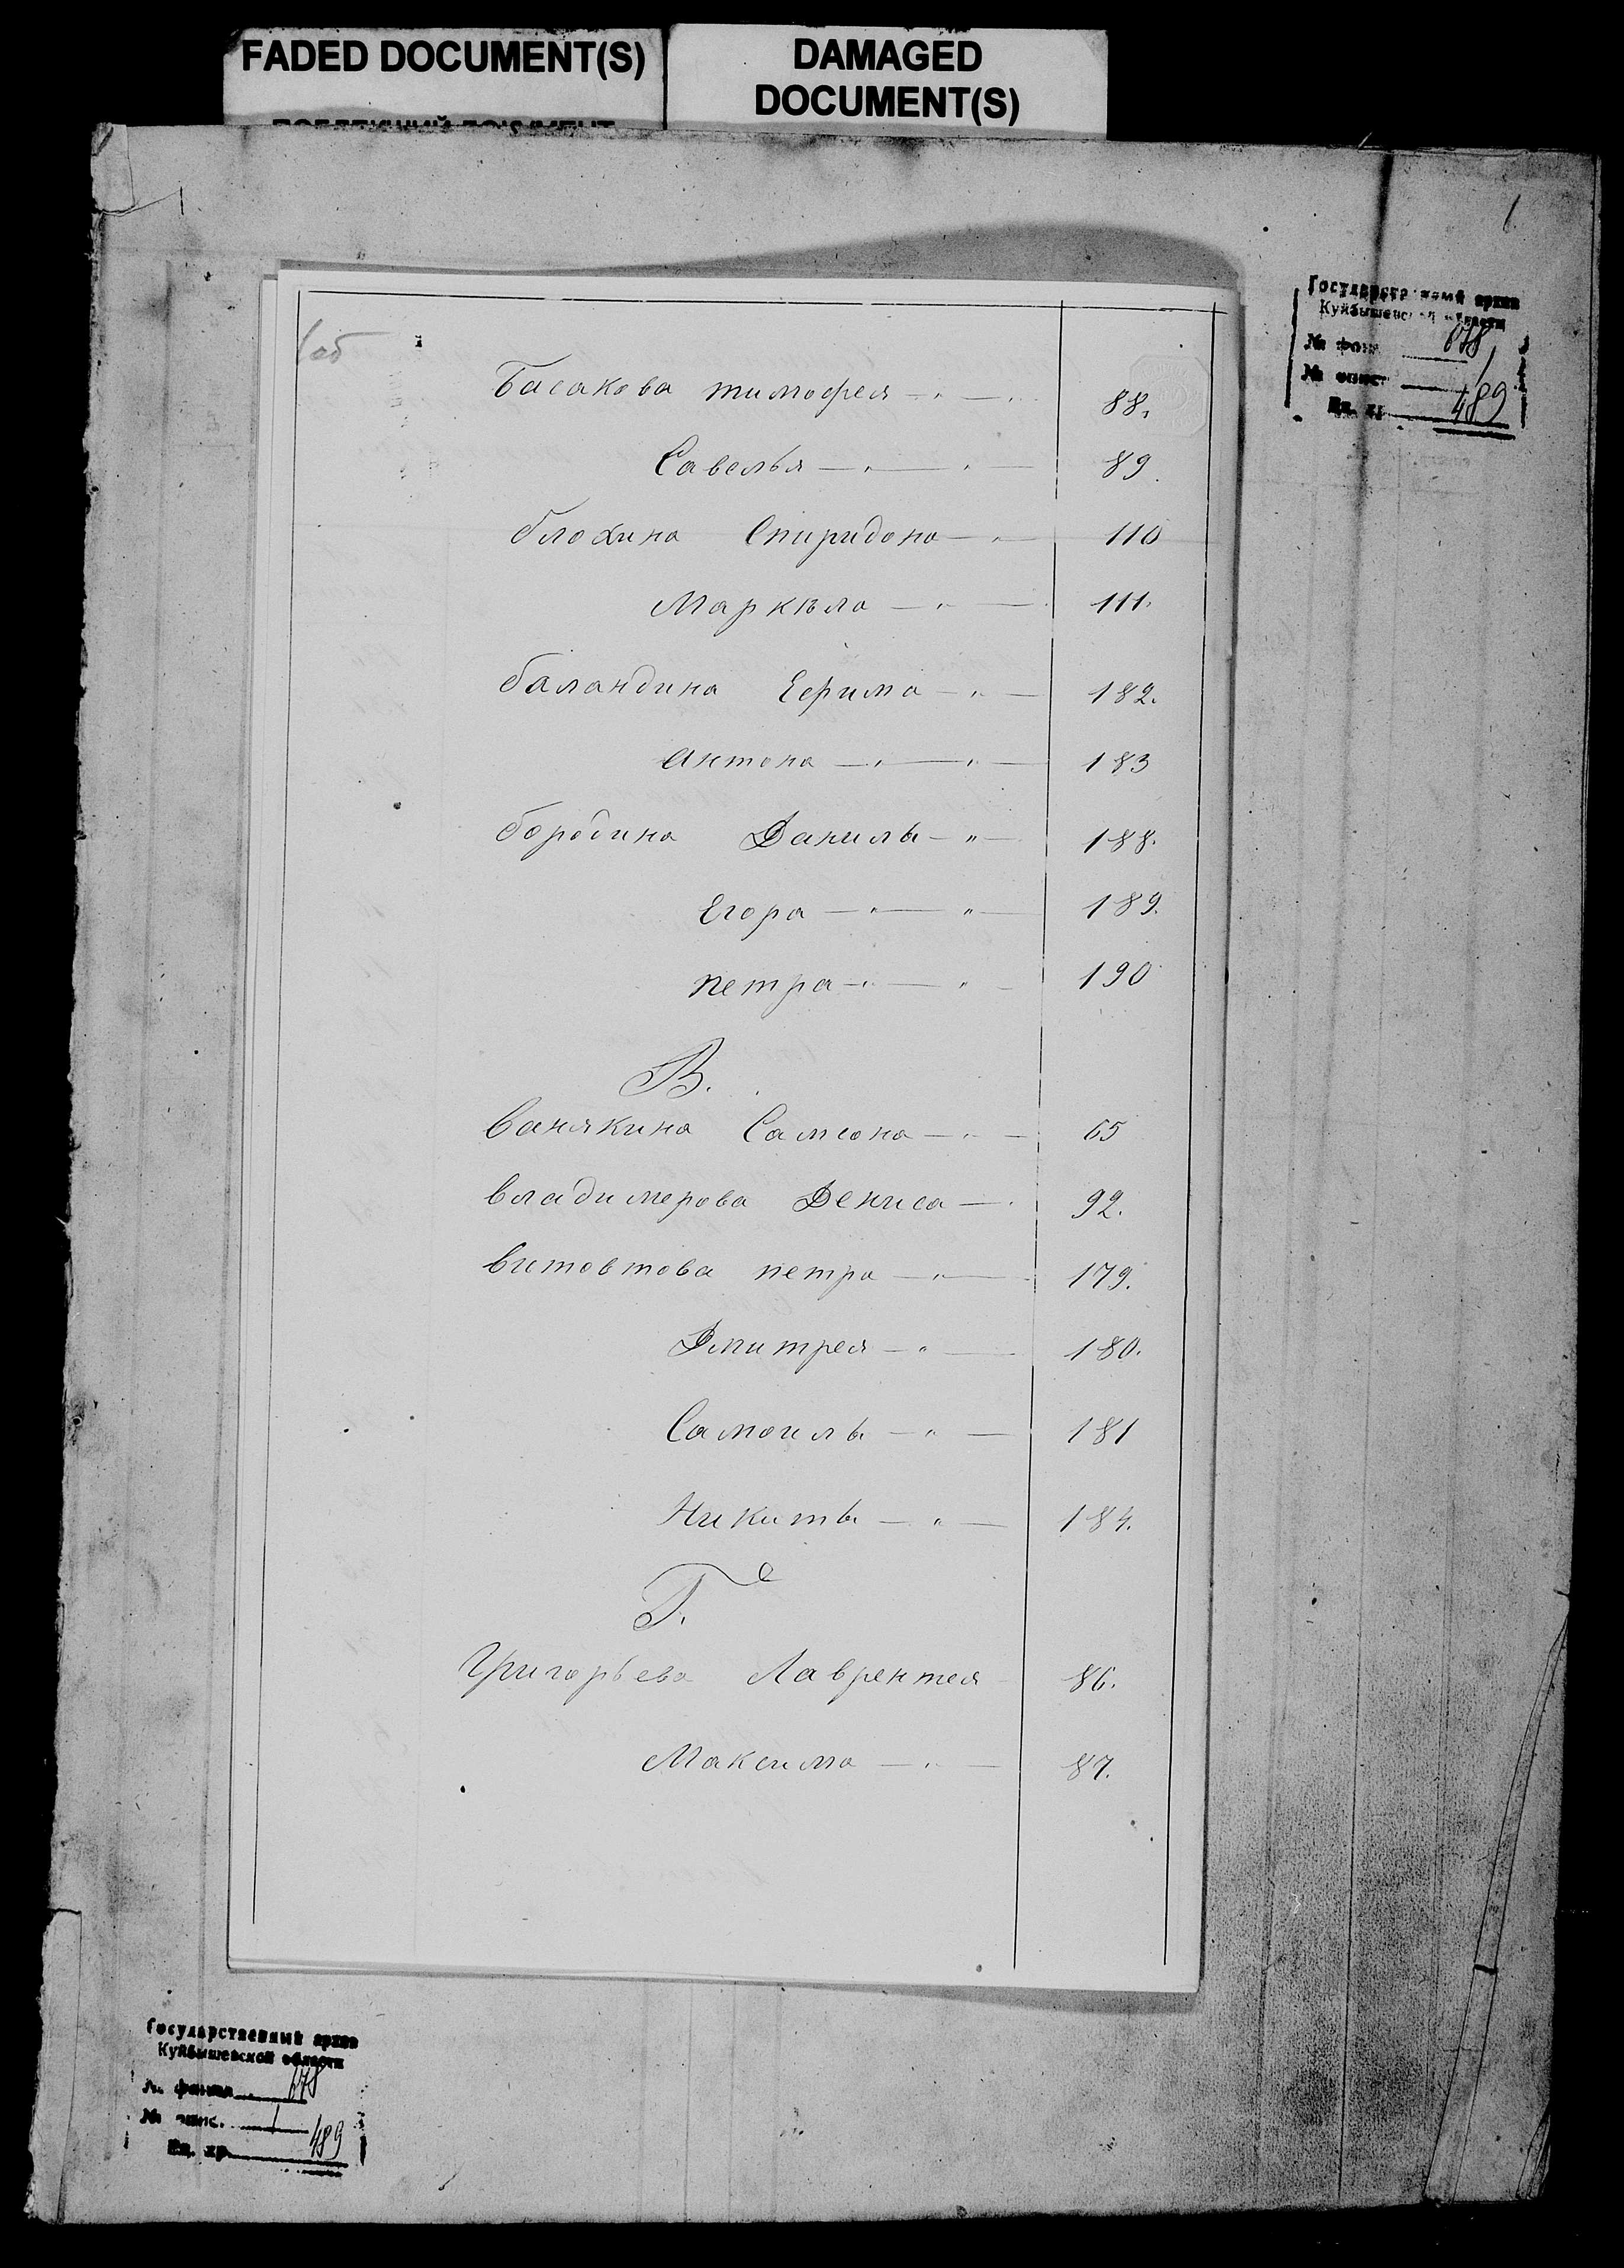 FADED DOCUMENT(S)
DAMAGED
DOCUMENT(S)
1
Государственный архив
Куйбышевской области
№ фонд 678
№ опис. 1
Ед. хр. 489
1об
Басакова тимофея 88.
Савелья 89
блохина Спиридона 110
Маркѣла 111.
баландина Ефима 182.
антона 183
бородина Данилы 188.
Егора 189.
петра 190
В.
Ванякина Самсона 65
владимерова Дениса 92.
витовтова петра 179.
Дмитрея 180.
Самоилы 181
Никиты 184.
Г.
Григорьева Лаврентея 86.
Максима 87.
Государственный архив
Куйбышевской области
№ фонда 678
№ опис. 1
Ед. хр. 489